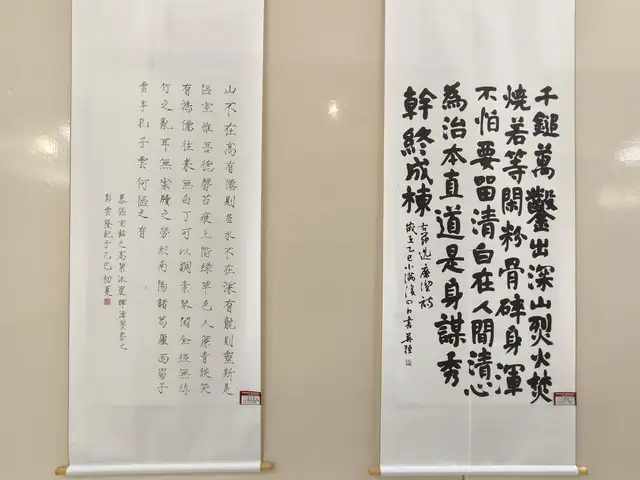 千鎚萬鑿出深山烈火焚
燒若等閑粉骨碎身渾
不怕要留清白在人間清心
為治本直道是身謀秀
幹終成棟
節選廉潔詩
歲在乙巳小滿後
山不在高有僊則名水不在深有龍則靈斯是
陋室惟吾德馨苔痕上階綠草色入簾青談笑
有鴻儒往來無白丁可以調素琴閱金經無絲
竹之亂耳無案牘之勞形南陽諸葛廬西蜀子
雲亭孔子雲何陋之有
慕陋室銘之高潔沐
彭雲隆記于乙巳初夏